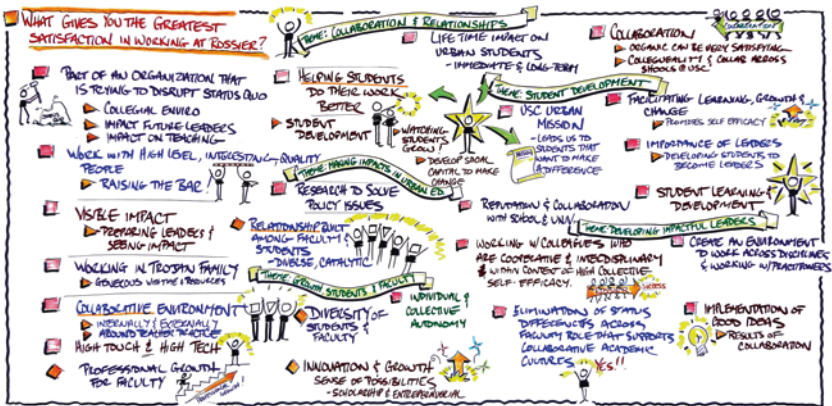 WHAT GIVES YOU THE GREATEST
SATISFACTION IN WORKING AT ROSSIER?
PART OF AN ORGANIZATION THAT
IS TRYING TO DISRUPT STATUS QUO
COLLEGIAL ENVIRO
IMPACT FUTURE LEADERS
IMPACT ON TEACHING
WORK WITH HIGH LEVEL, INTERESTING, QUALITY
PEOPLE
RAISING THE BAR!
VISIBLE IMPACT
PREPARING LEADERS &
SEEING IMPACT
WORKING IN TROJAN FAMILY
GENEROUS W/ TIME & RESOURCES
COLLABORATIVE ENVIRONMENT
INTERNALLY & EXTERNALLY
AROUND TEACHER PRACTICES
HIGH TOUCH & HIGH TECH
PROFESSIONAL GROWTH
FOR FACULTY
THEME: COLLABORATION & RELATIONSHIPS
HELPING STUDENTS
DO THEIR WORK
BETTER
STUDENT
DEVELOPMENT
WATCHING
STUDENTS
GROW!
THEME: MAKING IMPACTS IN URBAN ED.
RESEARCH TO SOLVE
POLICY ISSUES
RELATIONSHIP BUILT
AMONG FACULTY &
STUDENTS
- DIVERSE, CATALYTIC
THEME: GROWTH STUDENTS & FACULTY
DIVERSITY OF
STUDENTS &
FACULTY
INDIVIDUAL &
COLLECTIVE
AUTONOMY
INNOVATION & GROWTH
SENSE OF POSSIBILITIES
- SCHOLARSHIP & ENTREPRENEURIAL
LIFE TIME IMPACT ON
URBAN STUDENTS
- IMMEDIATE & LONG-TERM
THEME: STUDENT DEVELOPMENT
DEVELOP SOCIAL
CAPITAL TO MAKE
CHANGE
USC URBAN
MISSION
- LEADS US TO
STUDENTS THAT
WANT TO MAKE
A DIFFERENCE
REPUTATION & COLLABORATION
WITH SCHOOL & UNIV.
WORKING W/ COLLEAGUES WHO
ARE COOPERATIVE & INTERDISIPLINARY
& WITHIN CONTEXT OF HIGH COLLECTIVE
SELF-EFFICACY.
SUCCESS
ELIMINATION OF STATUS
DIFFERENCES ACROSS
FACULTY ROLE THAT SUPPORTS
COLLABORATIVE ACADEMIC
CULTURES
YES!!
COLLABORATION
ORGANIC CAN BE VERY SATISFYING
COLLEGUEALITY & COLLAB ACROSS
SHOOLS @ USC
FACILITATING LEARNING, GROWTH &
CHANGE
PROVIDES SELF EFFICACY
IMPORTANCE OF LEADERS
DEVELOPING STUDENTS TO
BECOME LEADERS
STUDENT LEARNING &
DEVELOPMENT
THEME: DEVELOPING IMPACTFUL LEADERS
CREATE AN ENVIRONMENT
TO WORK ACROSS DISCIPLINES
& WORKING W/ PRACTITIONERS
IMPLEMENTATION OF
GOOD IDEAS
RESULTS OF
COLLABORATION